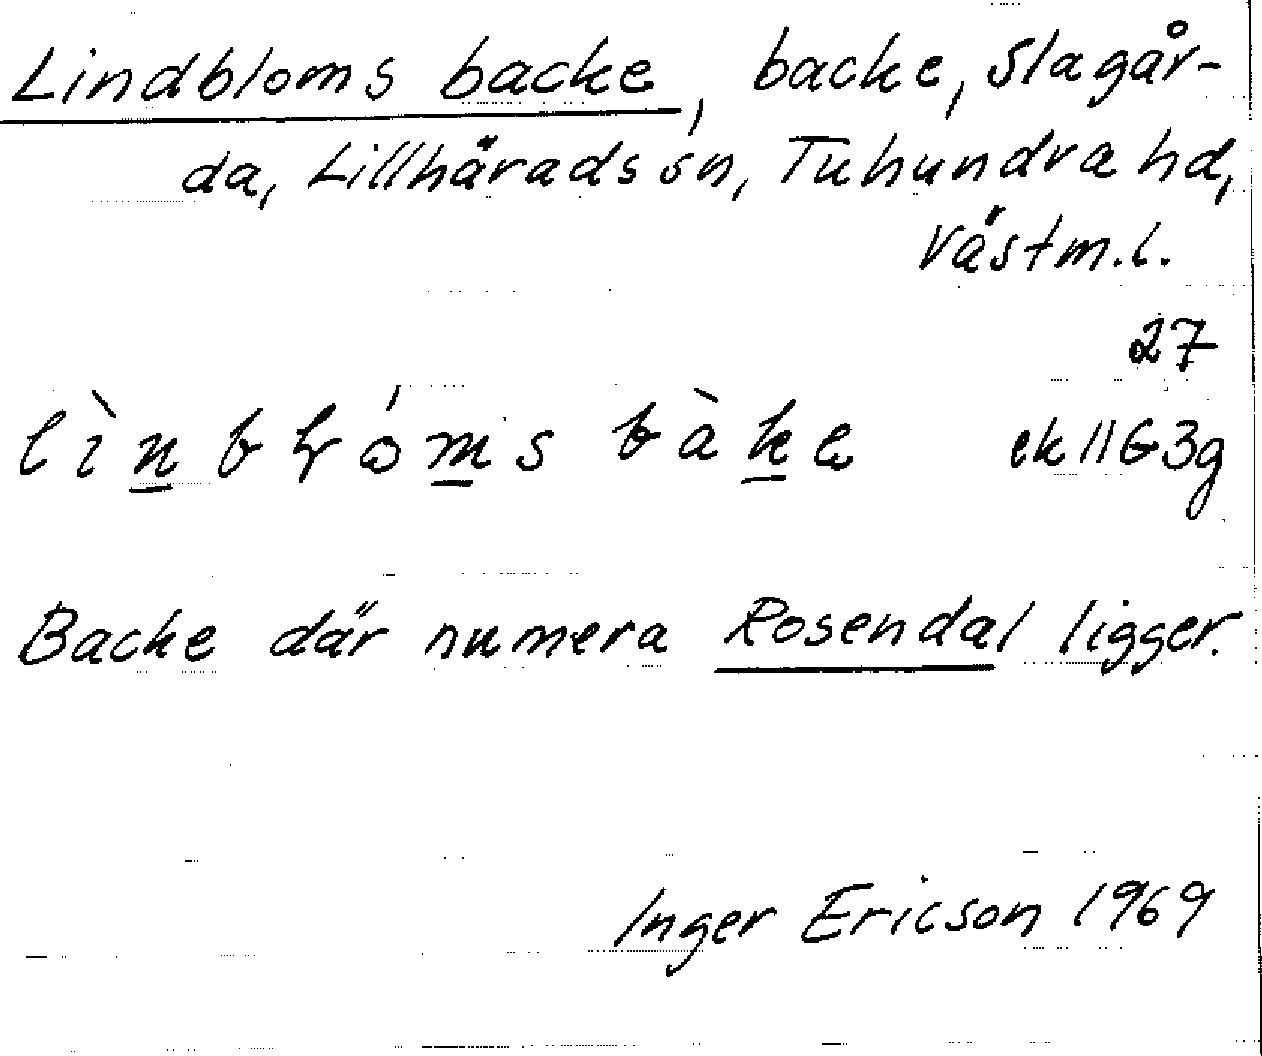 Lindbloms backe, backe, Slagår-
da, Lillhärads sn, Tuhundra hd,
Västm.l.
27
ek 11G3g
Backe där numera Rosendal ligger.
Inger Ericson 1969